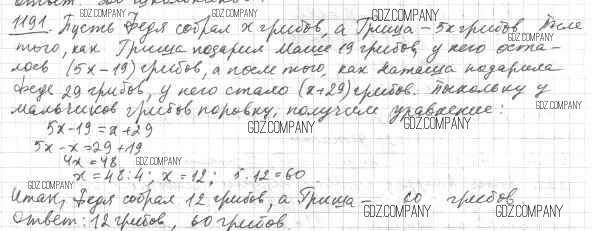 1191. Пусть Федя собрал x грибов, а Гриша – 5x грибов. После
того, как Гриша подарил Маше 19 грибов, у него оста-
лось (5x – 19) грибов, а после того, как Наташа подарила
Феде 29 грибов, у него стало (x+29) грибов. Поскольку у
мальчиков грибов поровну, получаем уравнение:
5x-19 = x+29
5x – x = 29+19
4x = 48
x = 48:4; x = 12; 5·12 = 60
Итак, Федя собрал 12 грибов, а Гриша – 60 грибов.
Ответ: 12 грибов, 60 грибов.
GDZ.COMPANY
GDZ.COMPANY
GDZ.COMPANY
GDZ.COMPANY
GDZ.COMPANY
GDZ.COMPANY
GDZ.COMPANY
GDZ.COMPANY
GDZ.COMPANY
GDZ.COMPANY
GDZ.COMPANY